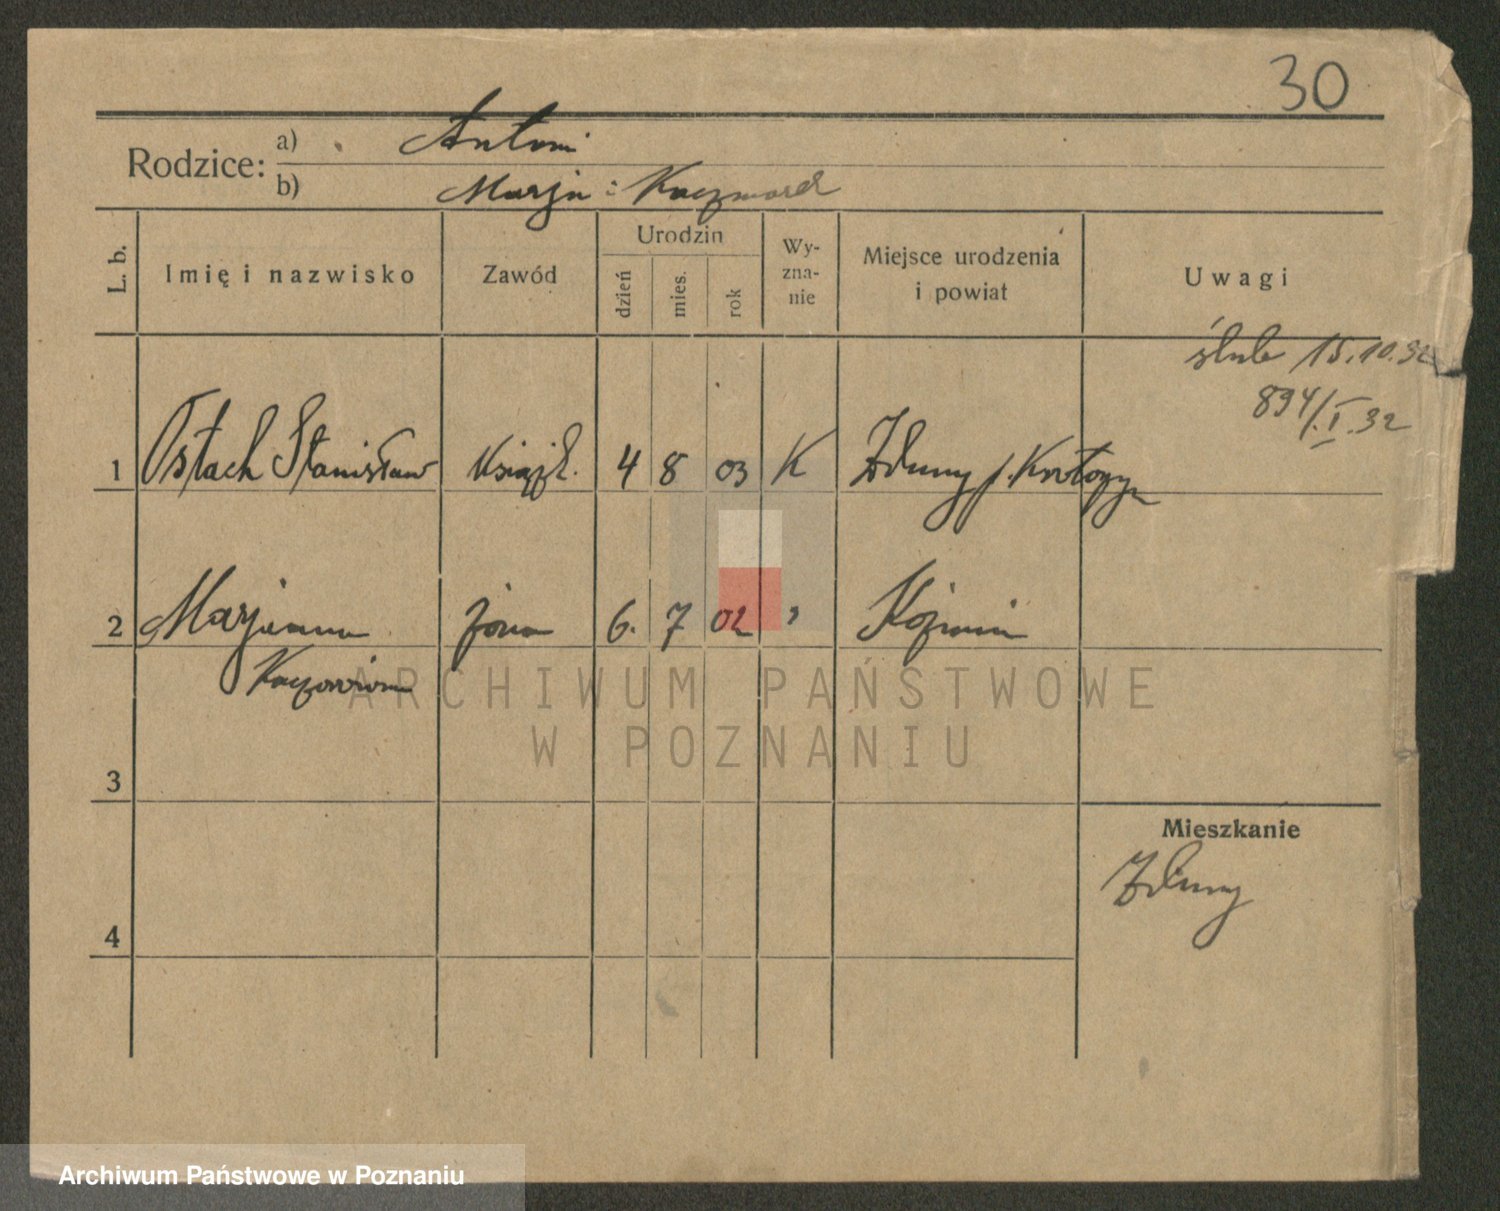 30
Rodzice:
a) Antoni
b) Marja : Kaczmarek
L. b.
Imię i nazwisko
Zawód
Urodzin
dzień
mies.
rok
Wy-
zna-
nie
Miejsce urodzenia
i powiat
Uwagi
ślub 15.10.32
894/I.32
1 Ostach Stanisław 4 8 03 K Zduny p. Krotoszyn
2 Marjanna żona 6. 7 02 " Koźmin
3
Mieszkanie
Zduny
4
ARCHIWUM PAŃSTWOWE
W POZNANIU
Archiwum Państwowe w Poznaniu